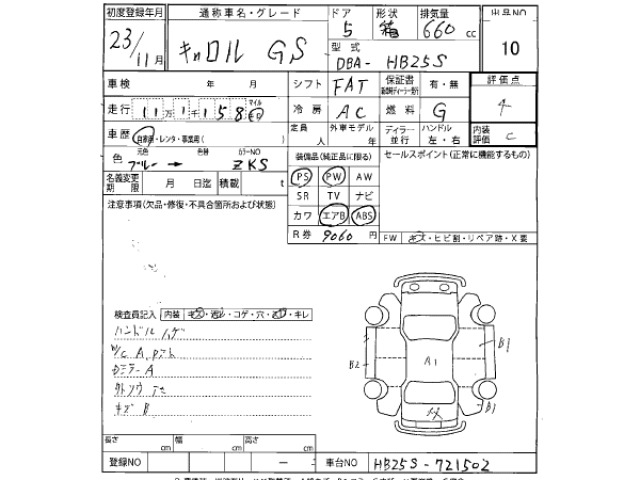 初度登録年月 通称車名・グレード ドア 形状 排気量 出品NO
23/11月 キャロル GS 5 箱 660 cc 10
型式 DBA-HB25S
車検 年 月 シフト FAT 保証書 有・無 評価点
走行 11万1千158 マイル km 冷房 AC 燃料 G 4
車歴 自家用・レンタ・事業用( ) 定員 人 外車モデル 年 ディラー 並行 ハンドル 左・右 内装評価 C
色 元色 ブルー → 色替 カラーNO ZKS 装備品(純正品に限る) セールスポイント(正常に機能するもの)
名義変更期限 月 日迄 積載 t PS PW AW
注意事項(欠品・修復・不具合箇所および状態) SR TV ナビ
カワ エアB ABS
R券 9060 円 FW キズ・ヒビ割・リペア跡・X要
検査員記入 内装 キズ・コゲ・穴・キレ
ハンドル ハゲ
W/C A
ドミラー A
キズ B
A1
B2
B1
B1
長さ cm 幅 cm 高さ cm
登録NO - 車台NO HB25S-721502